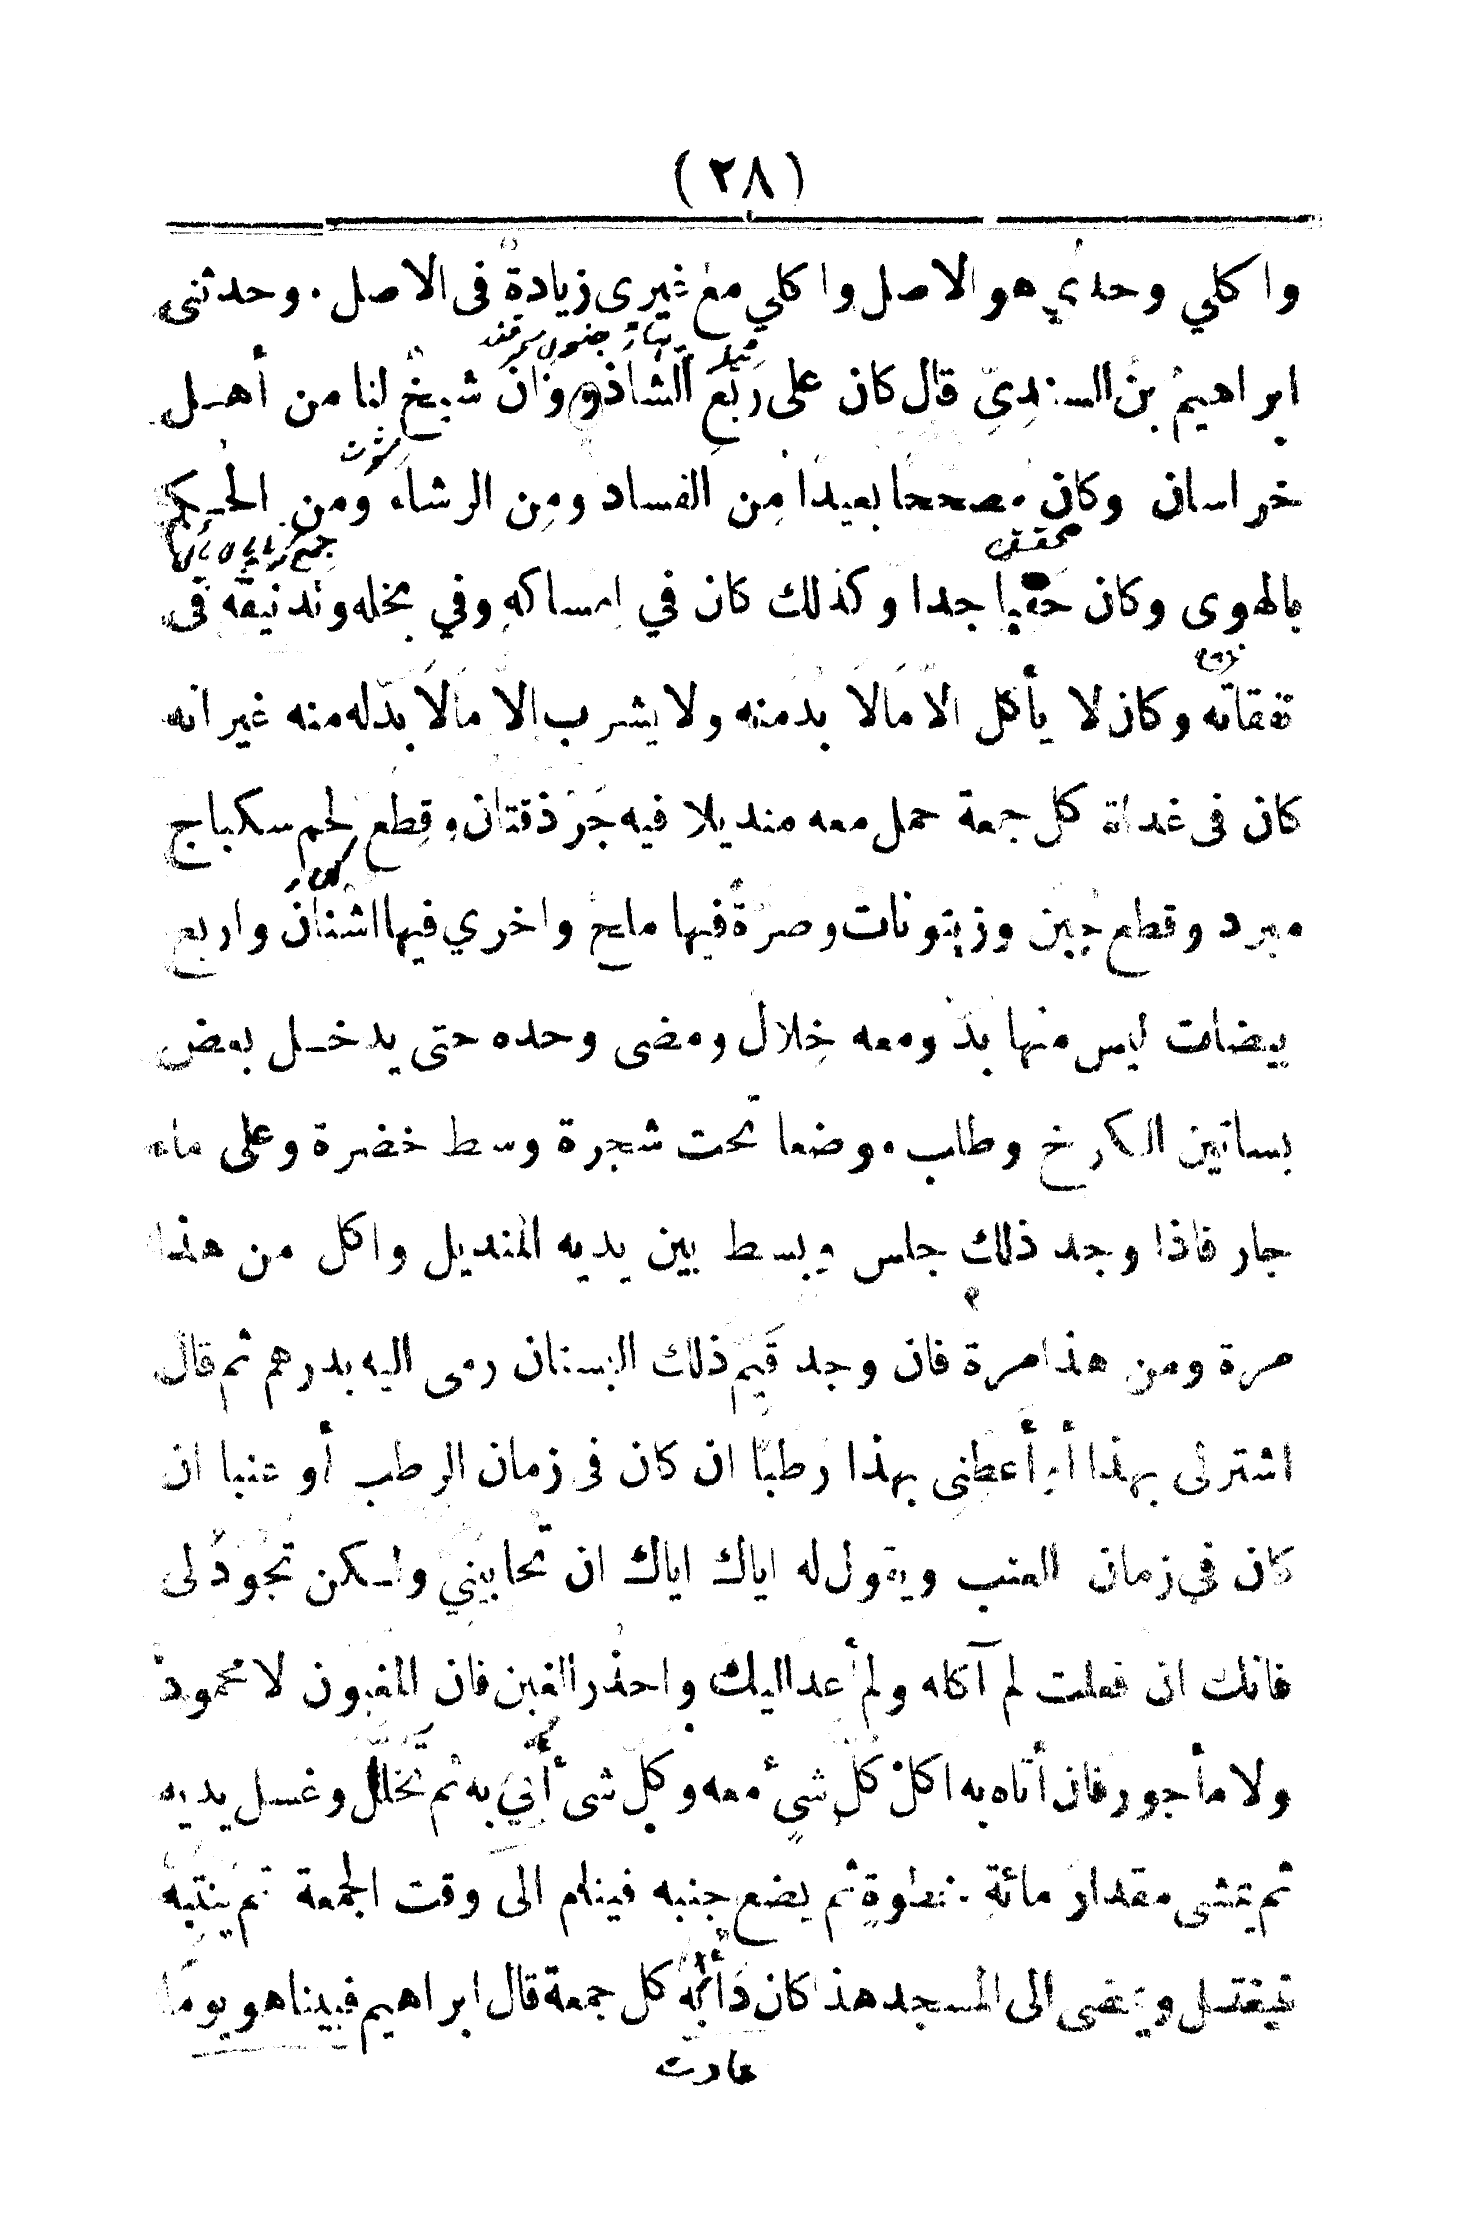 (٢٨)
واكلي وحدي هو الاصل واكلي مع غيرى زيادة فى الاصل . وحدثنى
ابراهيم بن السندىّ قال كان على رَبْع الشاذروان شيخ لنا من أهل
خراسان وكان مصححا بعيدا من الفساد ومن الرشاء ومن الحكم
بالهوى وكان حفيا جدا وكذلك كان في امساكه وفي بخله وتدنيقه فى
نفقاته وكان لا يأكل الا مالا بدمنه ولا يشرب الا مالا بدّله منه غير انه
كان فى غداة كل جمعة حمل معه منديلا فيه جَرْذقتان وقطع لحم سكباج
مبرد وقطع جبن وزيتونات وصرّة فيها ملح واخري فيها اشنان واربع
بيضات ليس منها بدّ ومعه خِلال ومضى وحده حتى يدخل بعض
بساتين الكرخ وطلب موضعا تحت شجرة وسط خضرة وعلى ماء
جار فاذا وجد ذلك جلس وبسط بين يديه المنديل واكل من هذا
مرة ومن هذا مرة فان وجد قيّم ذلك البستان رمى اليه بدرهم ثم قال
اشتر لى بهذا أو أعطنى بهذا رطبًا ان كان فى زمان الرطب أو عنبا ان
كان في زمان العنب ويقول له اياك اياك ان تحابيني ولكن تجوّد لى
فانك ان فعلت لم آكله ولم أعد اليك واحذر الغبن فان المغبون لا محمود
ولا مأجور فان أتاه به اكل كل شيء معه وكل شىء أُتي به ثم تخلّل وغسل يديه
ثم يمشى مقدار مائةِ خطوةٍ ثم يضع جنبه فينام الى وقت الجمعة ثم ينتبه
فيغتسل ويمضى الى المسجد هذا كان دأبه كل جمعة قال ابراهيم فبينا هو يوما
عادت